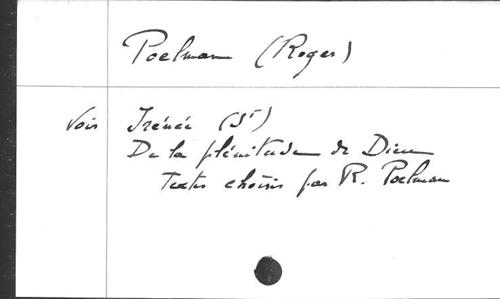 Poelman (Roger)
Voir Irénée (St)
De la plénitude de Dieu
Textes choisis par R. Poelman